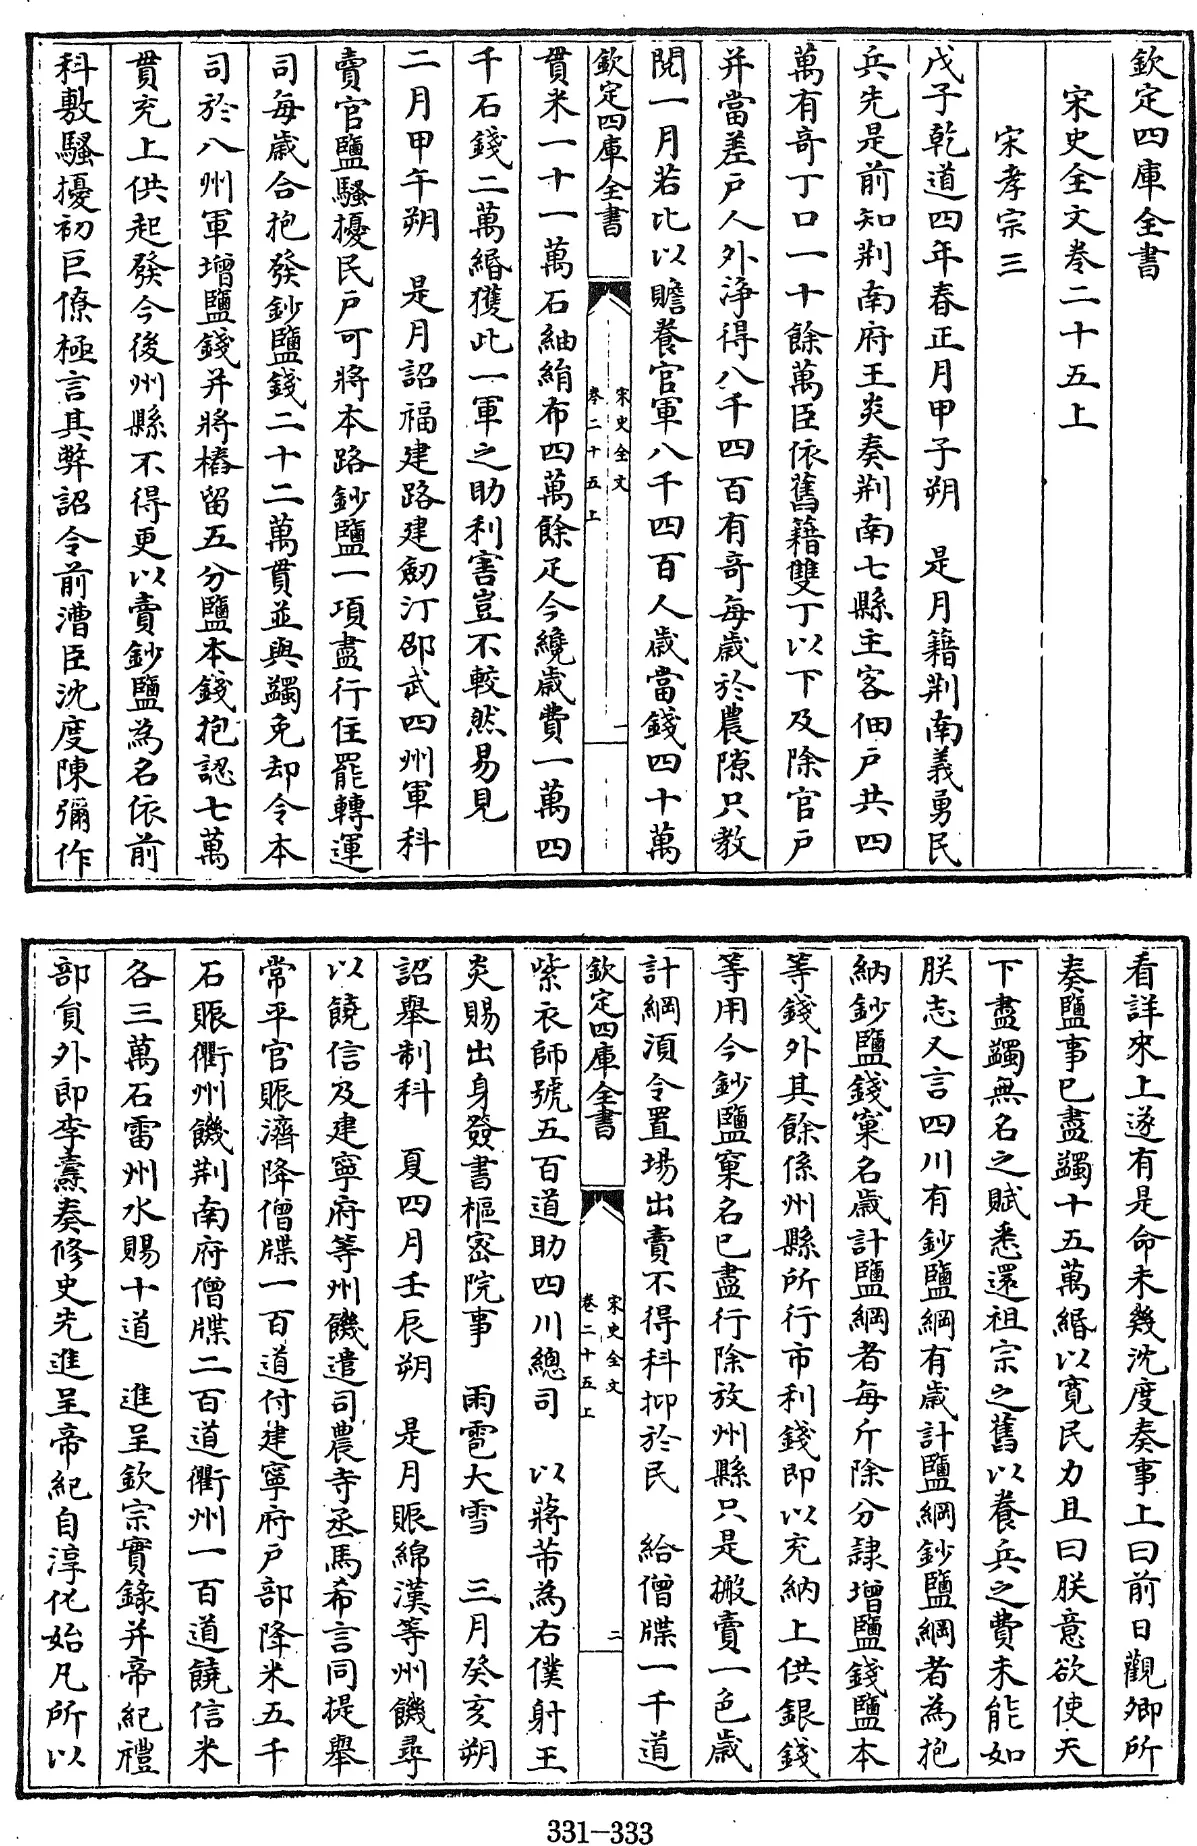 欽定四庫全書
宋史全文卷二十五上
宋孝宗三
戊子乾道四年春正月甲子朔　是月籍荆南義勇民
兵先是前知荆南府王炎奏荆南七縣主客佃戶共四
萬有奇丁口一十餘萬臣依舊籍雙丁以下及除官戶
并當差戶人外淨得八千四百有奇每歲於農隙只教
閱一月若比以贍養官軍八千四百人歲當錢四十萬
欽定四庫全書
宋史全文
卷二十五上
一
貫米一十一萬石紬絹布四萬餘疋今纔歲費一萬四
千石錢二萬緡獲此一軍之助利害豈不較然易見
二月甲午朔　是月詔福建路建劒汀邵武四州軍科
賣官鹽騷擾民戶可將本路鈔鹽一項盡行住罷轉運
司每歲合抱發鈔鹽錢二十二萬貫並與蠲免却令本
司於八州軍增鹽錢并將樁留五分鹽本錢抱認七萬
貫充上供起發今後州縣不得更以賣鈔鹽為名依前
科敷騷擾初巨僚極言其弊詔令前漕臣沈度陳彌作
看詳來上遂有是命未幾沈度奏事上曰前日觀卿所
奏鹽事已盡蠲十五萬緡以寬民力且曰朕意欲使天
下盡蠲無名之賦悉還祖宗之舊以養兵之費未能如
朕志又言四川有鈔鹽綱有歲計鹽綱鈔鹽綱者為抱
納鈔鹽錢窠名歲計鹽綱者每斤除分隸增鹽錢鹽本
等錢外其餘係州縣所行市利錢即以充納上供銀錢
等用今鈔鹽窠名已盡行除放州縣只是搬賣一色歲
計綱須令置場出賣不得科抑於民　給僧牒一千道
欽定四庫全書
宋史全文
卷二十五上
二
紫衣師號五百道助四川總司　以蔣芾為右僕射王
炎賜出身發書樞密院事　雨雹大雪　三月癸亥朔
詔舉制科　夏四月壬辰朔　是月賑綿漢等州饑尋
以饒信及建寧府等州饑遣司農寺丞馬希言同提舉
常平官賑濟降僧牒一百道付建寧府戶部降米五千
石賑衢州饑荆南府僧牒二百道衢州一百道饒信米
各三萬石雷州水賜十道　進呈欽宗實錄并帝紀禮
部員外郎李燾奏修史先進呈帝紀自淳化始凡所以
331—333